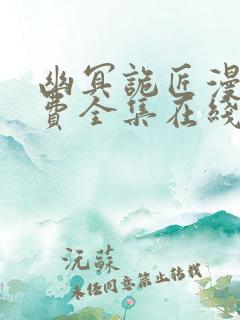 幽冥詭匠漫
費全集在綫
沅蘇
未經同意禁止轉載